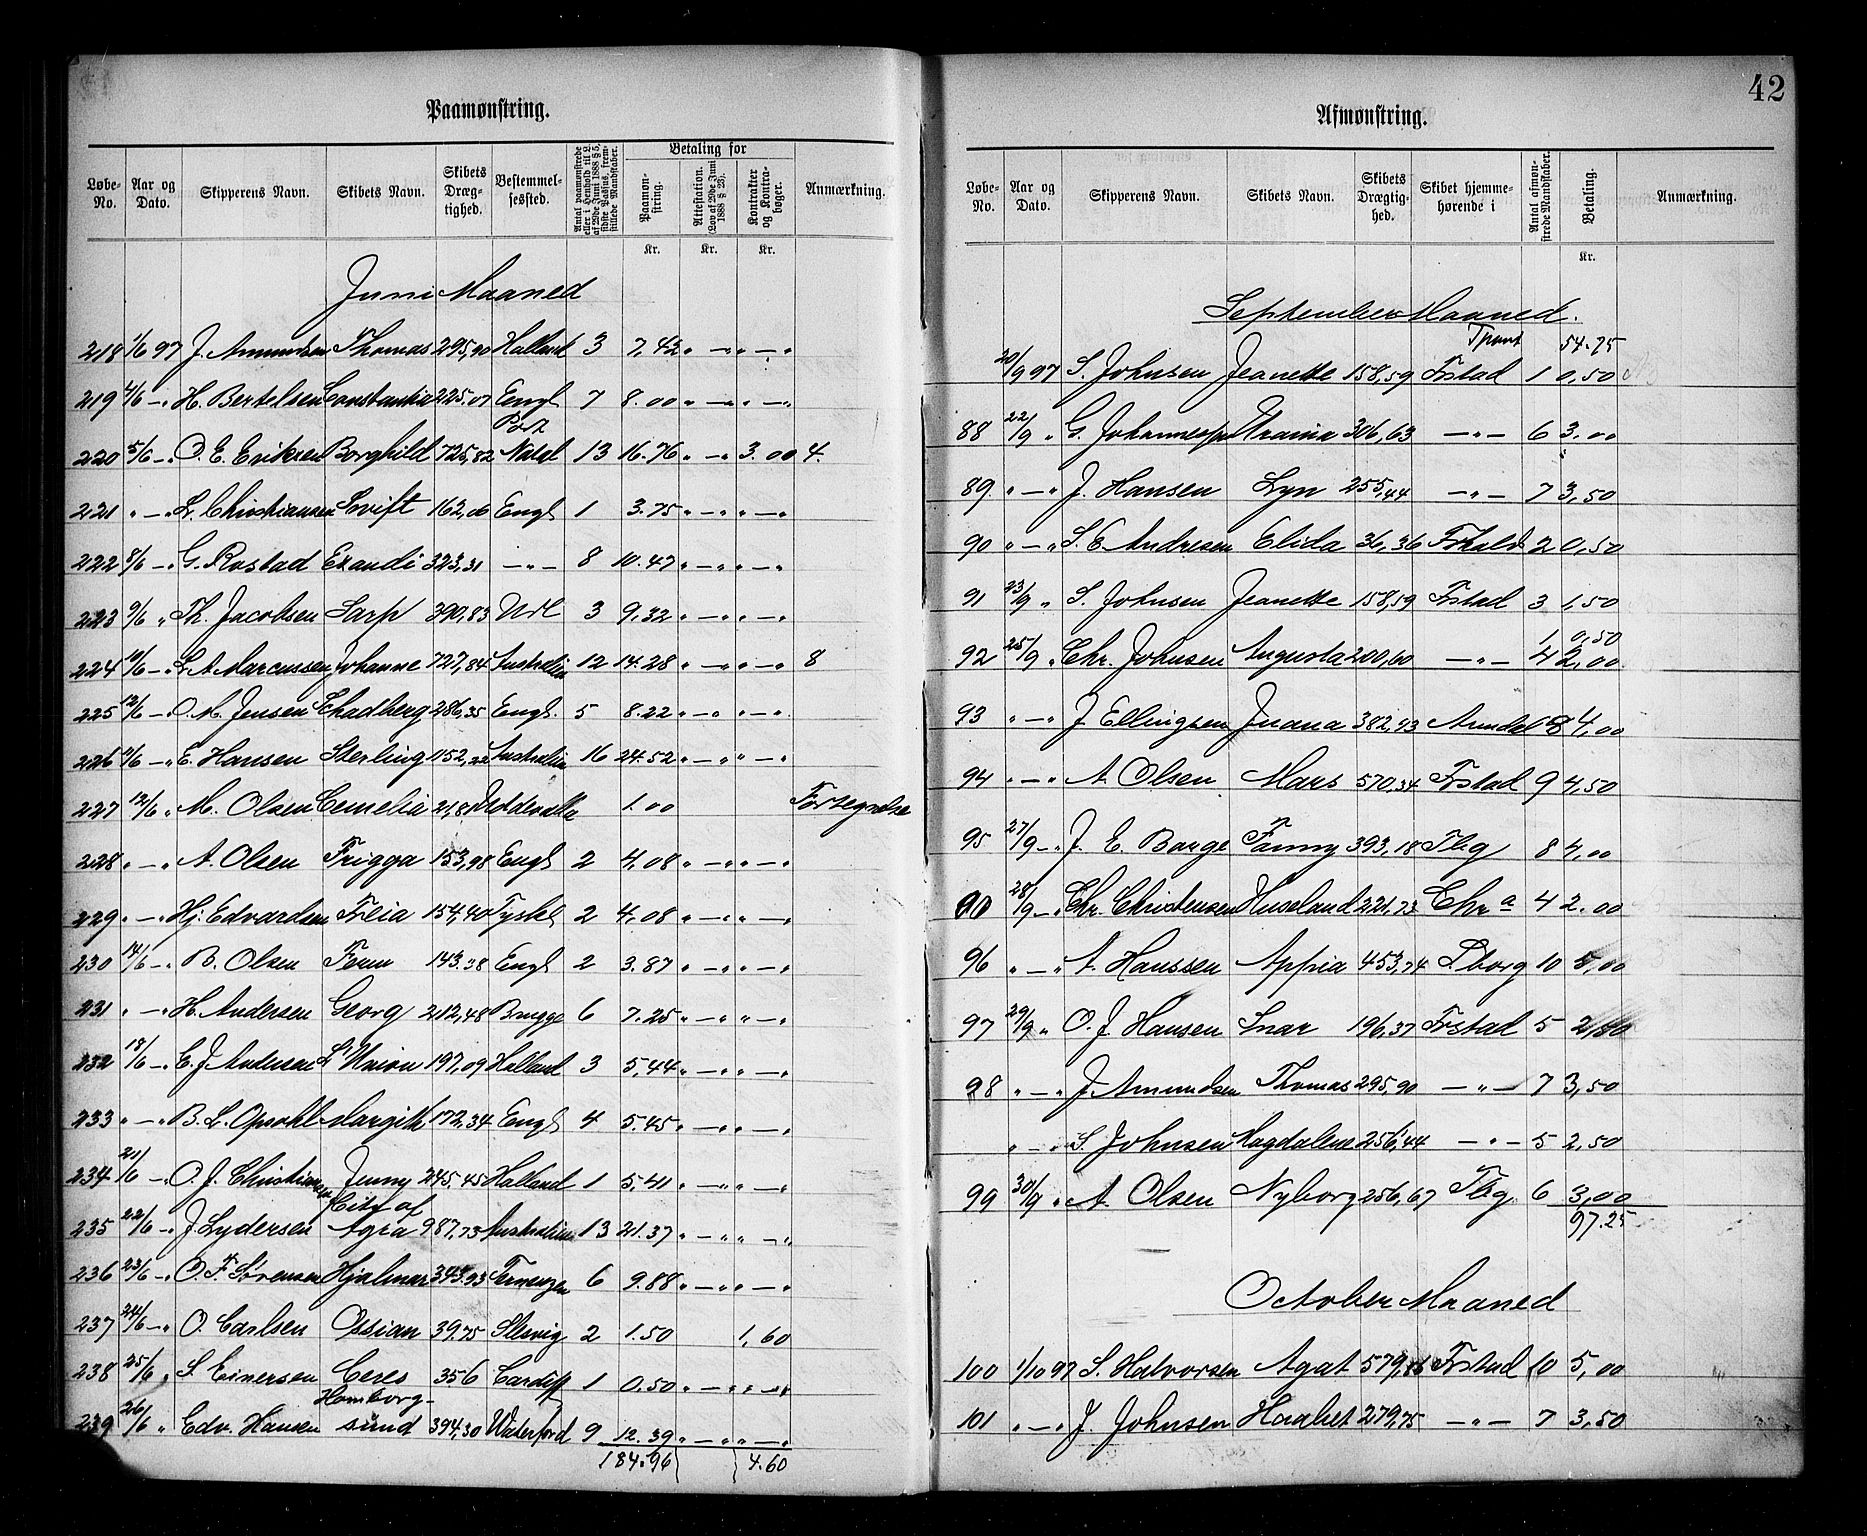 Paamønstring.
Løbe-No. Aar og Dato. Skipperens Navn. Skibets Navn. Skibets Dræg-tighed. Bestemmel-sessted. Betaling for Paamøn-string. Attestation. (Lov af 29de Juni 1888 § 23). Kontrakter og Kontra-bøger. Anmærkning.
Kr. Kr. Kr.
Juni Maaned
218 1/6 97 J. Amundsen Thomas 295,90 Holland 3 7,42 " — " " — "
219 4/6 — " H. Bertelsen Constantia 225.07 Engl 7 8.00 " — " " — "
Port
220 5/6 — " O. E. Eriksen Borghild 725,82 Natal 13 16.76 " — " 3.00 4.
221 " — " L. Christiansen Svift 162,06 Engl 1 3.75 " — " " — "
222 8/6 — " G. Rostad Exaudi 323,31 — " — 8 10.47 " — " " — "
223 9/6 " Th. Jacobsen Sarp 390,83 Url 3 9,32 " — " " — "
224 10/6 — " L. A. Marcussen Johanne 727,84 Australien 12 14.28 " — " " — " 8
225 12/6 — " O. M. Jensen Schadberg 286,35 Engl. 5 8.22 " — " " — "
226 11/6 — " E. Hansen Sterling 1152,22 Australien 16 24.52 " — " " — "
227 12/6 " M. Olsen Cemelia 21,81 Uddevalla 1.00 Fortegnelse
228 " — " A. Olsen Frigga 153,98 Engl 2 4,08 " — " " — "
229 " — " Hj. Edvardsen Freia 154,40 Tyskl 2 4,08 " — " " — "
230 14/6 — " B. Olsen Favn 143.38 Engl 2 3.87 " — " " — "
231 " — " H. Andersen Georg 212,48 Brugge 6 7.25 " — " " — "
232 18/6 — " E. J. Andersen L'Union 197,09 Holland 3 5,44 " — " " — "
233 " — " B. L. Opsahl Margith 172,34 Engl 4 5.45 " — " " — "
234 21/6 — " O. J. Christiansen Jenny 245,45 Holland 1 5,41 " — " " — "
City of
235 22/6 — " J. Lydersen Agra 987,73 Australien 13 21.37 " — " " — "
236 23/6 — " O. F. Sørensen Hjalmar 343,93 Terneuzen 6 9.88 " — " " — "
237 24/6 — " O. Carlsen Ossian 39,75 Slesvig 2 1.50 1,60
238 25/6 " S. Einersen Ceres 356 Cardiff 1 0.50 " — " " — "
Homborg-
239 26/6 " Edv. Hansen sund 394,30 Waterford 9 12.39 " — " " — "
184.96 4.60
42
Afmønstring.
Løbe-No. Aar og Dato. Skipperens Navn. Skibets Navn. Skibets Drægtig-hed. Skibet hjemme-hørende i Antal afmøn-strede Mandskaber. Betaling. Anmærkning.
Kr.
September Maaned.
Tpont 54.75
20/9 97 S. Johnsen Jeanette 158,59 Frstad 1 0,50
88 22/9 " G. Johannesen 306,63 — " — 6 3.00
89 " — " J. Hansen Lyn 255,44 — " — 7 3,50
90 " — " S. E. Andresen Elida 36,36 Frhald 2 0,50
91 23/9 " S. Johnsen Jeanette 158,59 Frstad 3 1,50
1 0,50
92 25/9 " Chr. Johnsen Augusta 200,60 — " — 4 2,00
93 " — " J Ellingsen Juana 382,93 Arendal 8 4,00
94 " — " A. Olsen Mars 570,34 Frstad 9 4,50
95 27/9 — " J. E. Borge Fanny 393,18 Tbg 8 4,00
90 28/9 — " Chr. Christensen Huseland 221,73 Chr a 4 2.00
96 " — " A. Hanssen Appia 453,74 S.borg 10 5,00
97 29/9 " O. J. Hansen Snar 196,37 Frstad 5 2,50
98 " — " J. Amundsen Thomas 295,90 — " — 7 3,50
" — " S. Johnsen Magdalene 256,44 — " — 5 2,50
99 30/9 " A. Olsen Nyborg 256,67 Tbg. 6 3,00
97.25
October Maaned
100 1/10 97 S. Halvorsen Agat 579,86 Frstad 10 5,00
101 " — " J. Johnsen Haabet 279,75 — " — 7 3,50